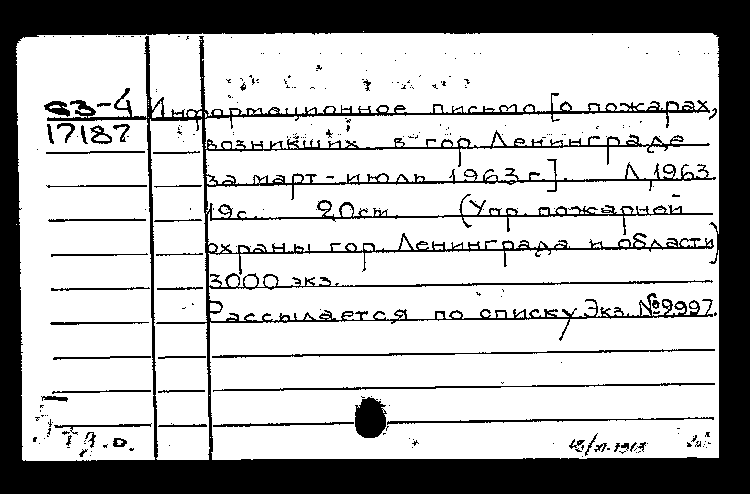 63-4 Информационное письмо [о пожарах,
17187 возникших в гор. Ленинграде
за март-июль 1963 г.]. Л, 1963
19с. 20см. (Упр. пожарной
охраны гор. Ленинграда и области)
3000 экз.
Рассылается по списку. Экз. №2997.